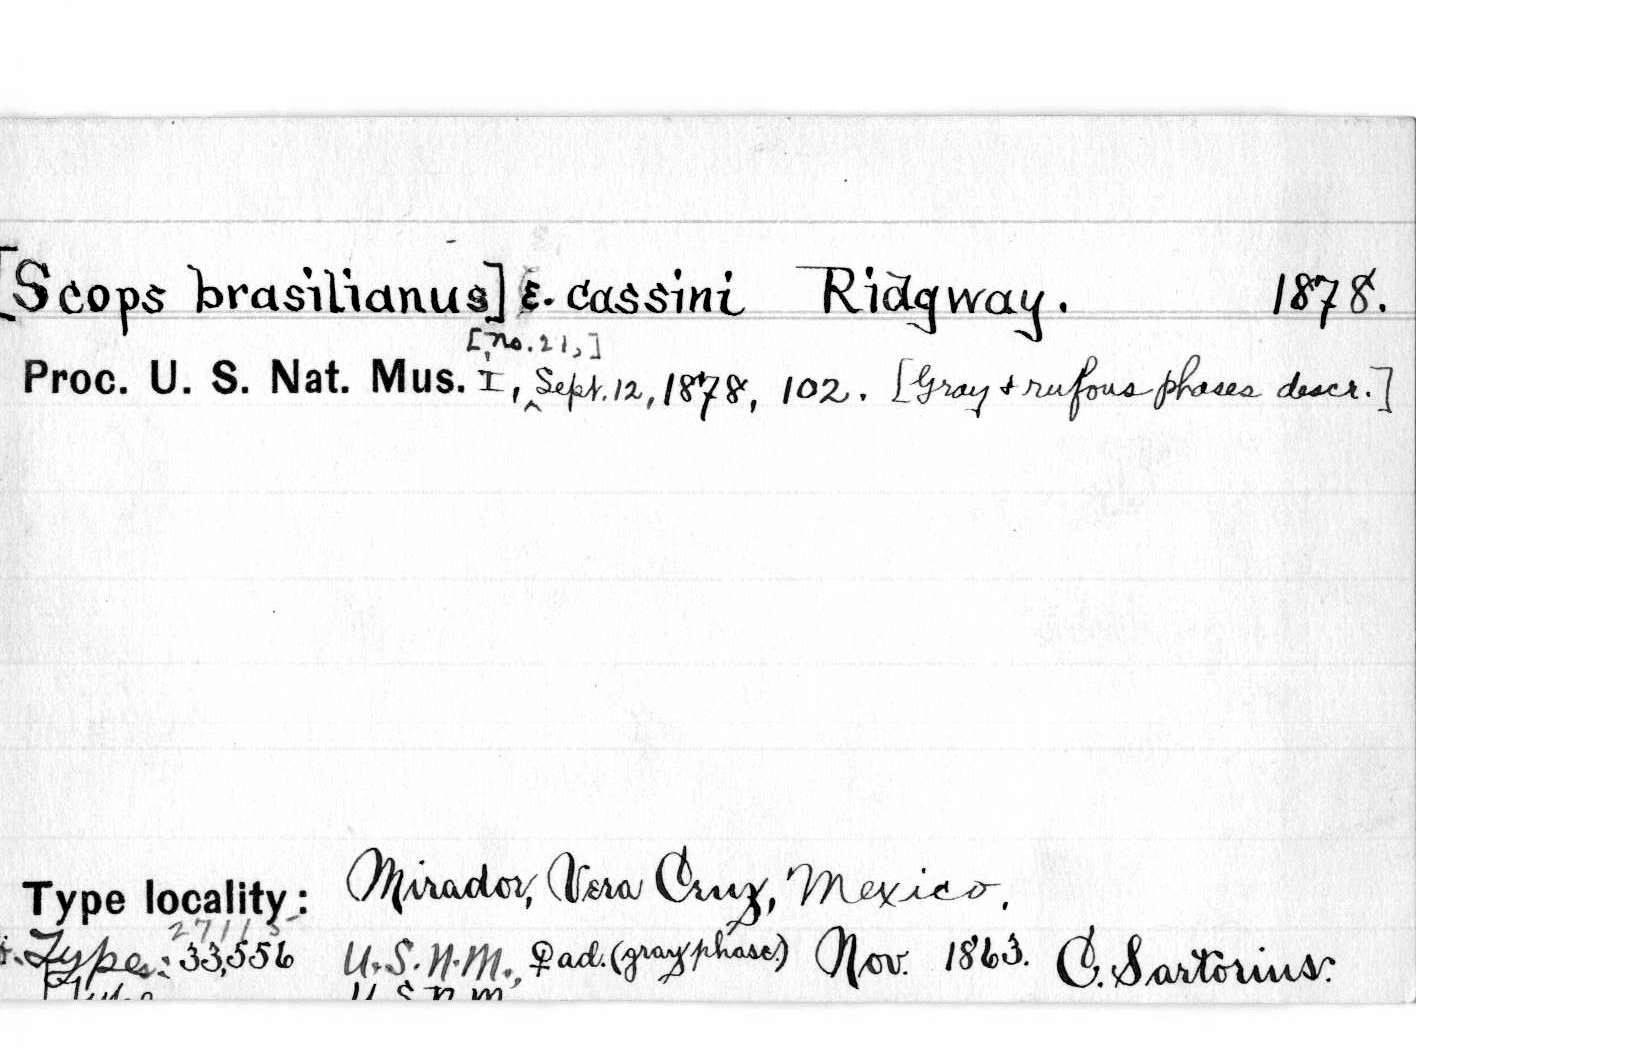 [Scops brasilianus] ε. cassini Ridgway. 1878.
[no. 21,]
Proc. U. S. Nat. Mus. I, Sept. 12, 1878, 102. [Gray & rufous phases descr.]
Type locality: Mirador, Vera Cruz, Mexico.
27113
Type: 33,556 U.S.N.M., ♀ ad. (gray phase.) Nov. 1863. C. Sartorius.
U.S.N.M.